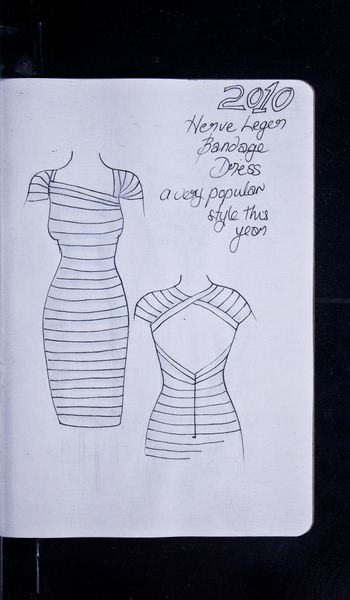 2010
Herve Leger
Bandage
Dress
a very popular
style this
year